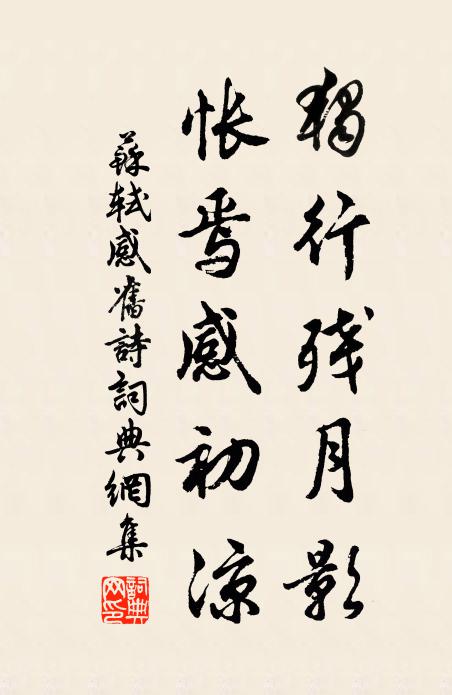 獨行残月影
悵焉感初涼
蘇軾感舊詩詞典網集
詞典網印